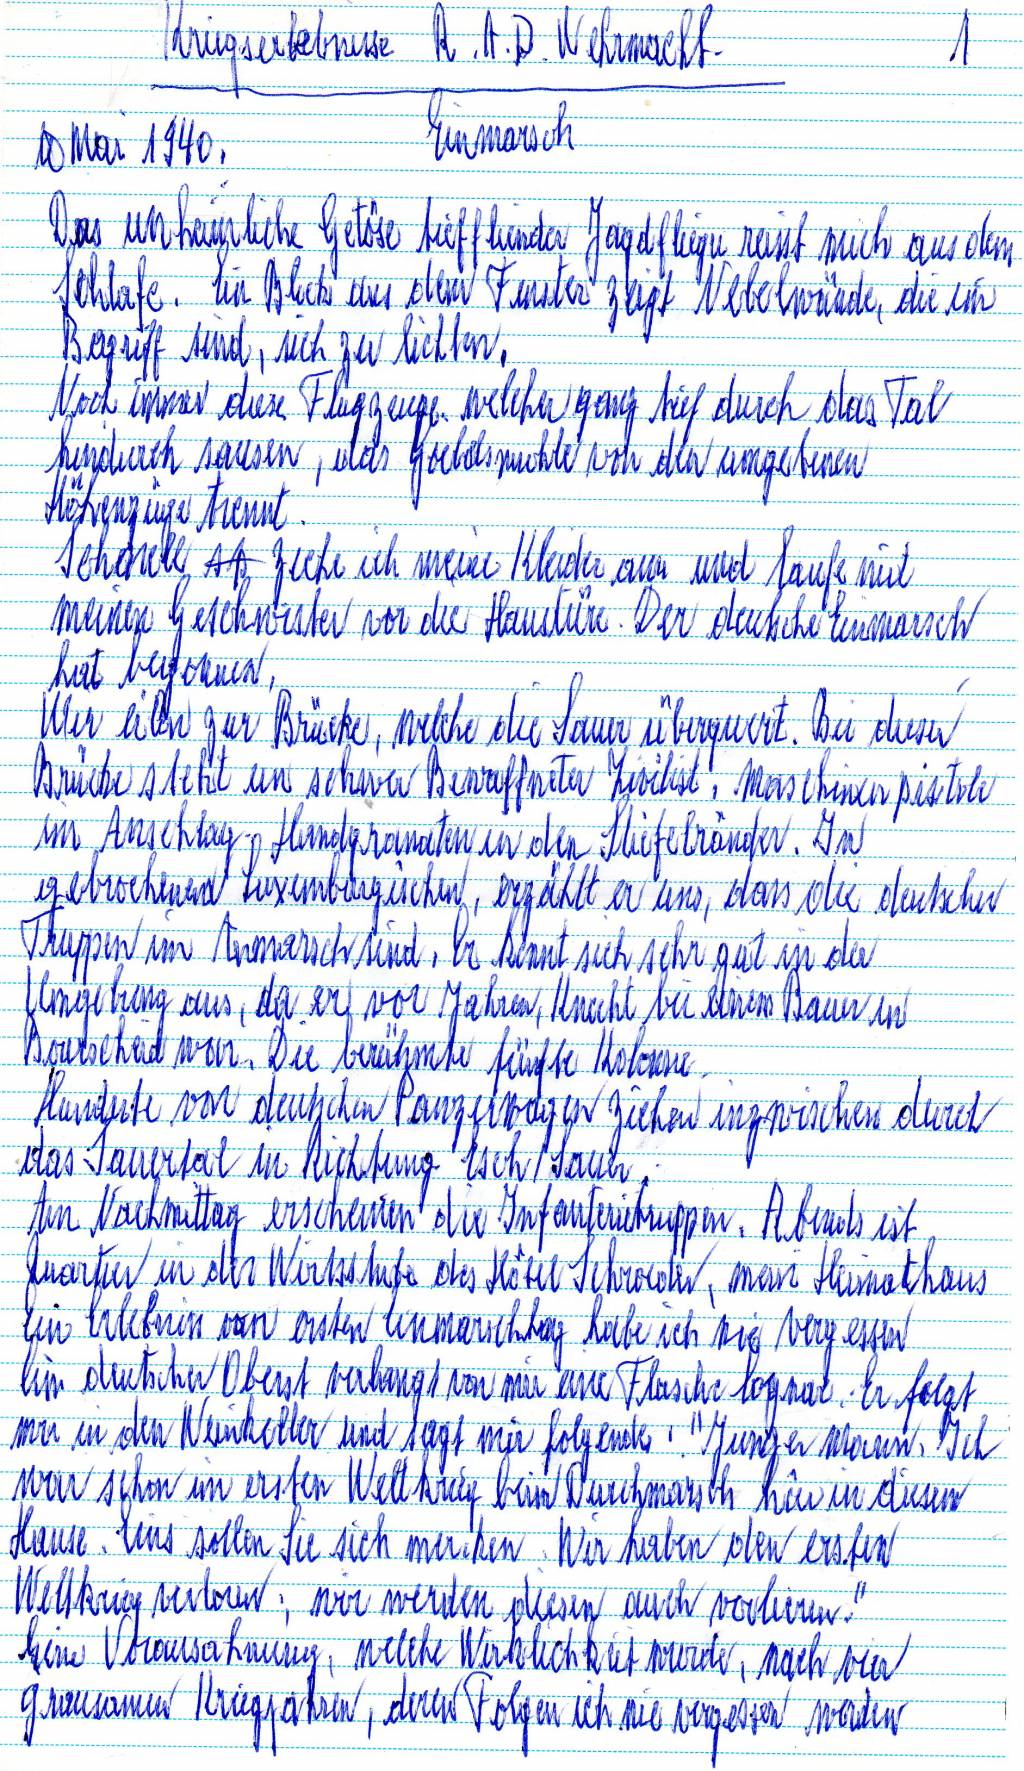 Kriegserlebnisse R.A.D. Wehrmacht. 1
10 Mai 1940. Einmarsch
Das unheimliche Getöse tieffliender Jagdflieger reisst mich aus dem
Schlafe. Ein Blick aus dem Fenster zeigt Nebelwände, die im
Begriff sind, sich zu lichten.
Noch immer diese Flugzeuge. welcher ganz tief durch das Tal
hindurch sausen, das Goebelsmühle von den umgebenen
Höhenzüge trennt.
Schnell ziehe ich meine Kleider an und laufe mit
meinen Geschwister vor die Haustüre. Der deutsche Einmarsch
hat begonnen,
Wir eilen zur Brücke, welche die Sauer überquert. Bei dieser
Brücke steht ein schwer Bewaffneter Zivilist, Maschinenpistole
im Anschlag, Handgranaten in den Stiefelränder. In
gebrochenem Luxemburgischen, erzählt er uns, dass die deutschen
Truppen im Anmarsch sind. Er kennt sich sehr gut in der
Umgebung aus, da er vor Jahren, Knecht bei einem Bauer in
Bourscheid war. Die berühmte fünfte Kolonne.
Hunderte von deutschen Panzerwagen ziehen inzwischen durch
das Sauertal in Richtung Esch/Sauer.
Am Nachmittag erscheinen die Infanterietruppen. Abends ist
Quartier in der Wirtsstube des Hôtel Schroeder, mein Heimathaus
Ein Erlebnis von ersten Einmarschtag habe ich nie vergessen
Ein deutscher Oberst verlangt von mir eine Flasche Cognac. Er folgt
mir in den Weinkeller und sagt mir folgende: "Junger Mann. Ich
war schon im ersten Weltkrieg beim Durchmarsch hier in diesem
Hause. Eins sollen Sie sich merken. Wir haben den ersten
Weltkrieg verloren, wir werden diesen auch verlieren."
Eine Vorausahnung, welche Wirklichkeit wurde, nach vier
grausamen Kriegsjahren, deren Folgen ich nie vergessen werden